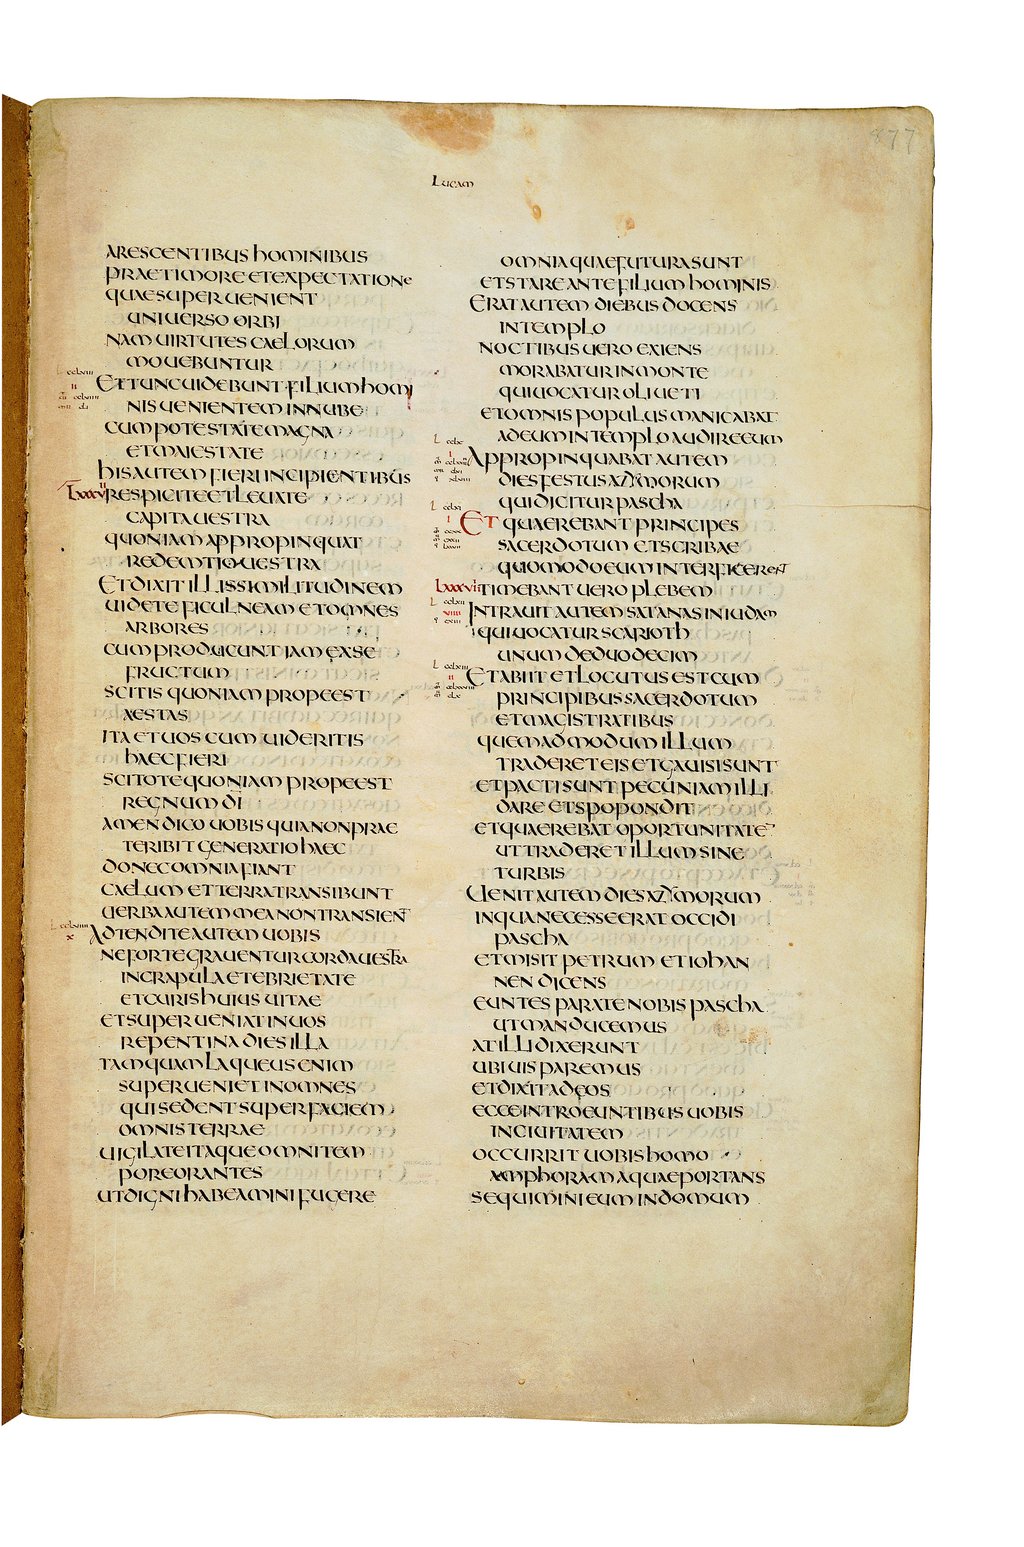 877
Lucam
ARESCENTIBUS hOMINIBUS
PRAETIMORE ETEXPECTATIONE
QUAESUPERUENIENT
UNIUERSO ORBI
NAMUIRTUTES CAELORUM
MOUEBUNTUR
ETTUNCUIDEBUNT FILIUM hOMI
NISUENIENTEM INNUBE
CUMPOTESTATEMAGNA
ETMAIESTATE
hISAUTEM FIERIINCIPIENTIBUS
LXXXV RESPICITEETLEUATE
CAPITAUESTRA
QUONIAMAPPROPINQUAT
REDEMTIOUESTRA
ETDIXIT ILLISSIMILITUDINEM
UIDETE FICULNEAM ETOMNES
ARBORES
CUMPRODUCUNTIAM EXSE
FRUCTUM
SCITIS QUONIAM PROPEEST
AESTAS
ITAETUOS CUM UIDERITIS
hAECFIERI
SCITOTEQUONIAM PROPEEST
REGNUM DI
AMEN DICO UOBIS QUIANONPRAE
TERIBIT GENERATIO hAEC
DONECOMNIAFIANT
CAELUM ETTERRATRANSIBUNT
UERBAAUTEM MEANONTRANSIENT
ADTENDITEAUTEM UOBIS
NEFORTEGRAUENTURCORDAUESTRA
INCRAPULAETEBRIETATE
ETCURIShUIUS UITAE
ETSUPERUENIATINUOS
REPENTINADIESILLA
TAMQUAM LAQUEUSENIM
SUPERUENIET INOMNES
QUISEDENTSUPERFACIEM
OMNISTERRAE
UIGILATEITAQUEOMNITEM
POREORANTES
UTDIGNIhABEAMINI FUGERE
OMNIAQUAEFUTURASUNT
ETSTAREANTEFILIUM hOMINIS
ERATAUTEM DIEBUS DOCENS
INTEMPLO
NOCTIBUS UERO EXIENS
MORABATURINMONTE
QUIUOCATUROLIUETI
ETOMNIS POPULUS MANICABAT
ADEUMINTEMPLOAUDIREEUM
APPROPINQUABAT AUTEM
DIESFESTUSAZYMORUM
QUIDICITURPASCHA
ET QUAEREBANT PRINCIPES
SACERDOTUM ETSCRIBAE
QUOMODOEUMINTERFICERENT
LXXXVI TIMEBANT UERO PLEBEM
INTRAUIT AUTEM SATANAS INIUDAM
QUIUOCATUR SCARIOTh
UNUM DEDUODECIM
ETABIIT ETLOCUTUS ESTCUM
PRINCIPIBUSSACERDOTUM
ETMAGISTRATIBUS
QUEMADMODUM ILLUM
TRADERETEIS ETGAUISISUNT
ETPACTISUNT PECUNIAMILLI
DARE ETSPOPONDIT
ETQUAEREBAT OPORTUNITATE
UTTRADERET ILLUMSINE
TURBIS
UENITAUTEM DIESAZYMORUM
INQUANECESSEERAT OCCIDI
PASCHA
ETMISIT PETRUM ETIOhAN
NEN DICENS
EUNTES PARATENOBIS PASCHA
UTMANDUCEMUS
ATILLIDIXERUNT
UBIUIS PAREMUS
ETDIXITADEOS
ECCEINTROEUNTIBUS UOBIS
INCIUITATEM
OCCURRIT UOBIShOMO
AMPhORAMAQUAEPORTANS
SEQUIMINIEUM INDOMUM